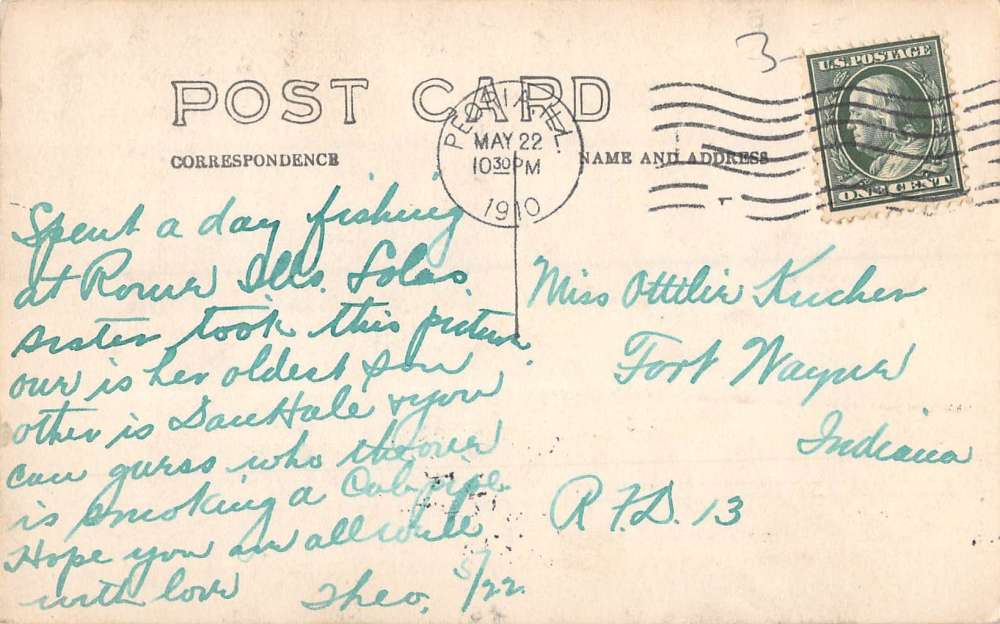 3-
U.S. POSTAGE
ONE CENT
POST CARD
PEORIA, ILL.
MAY 22
10 30 PM
1910
CORRESPONDENCE
NAME AND ADDRESS
Spent a day fishing
at Rome Ills. Lolas
sister took this picture
one is her oldest son
other is Dan Hale & you
can guess who the one
is smoking a Cob pipe.
Hope you are all well
with love Theo. 5/22.
Miss Ottilie Kucher
Fort Wayne
Indiana
R.F.D. 13